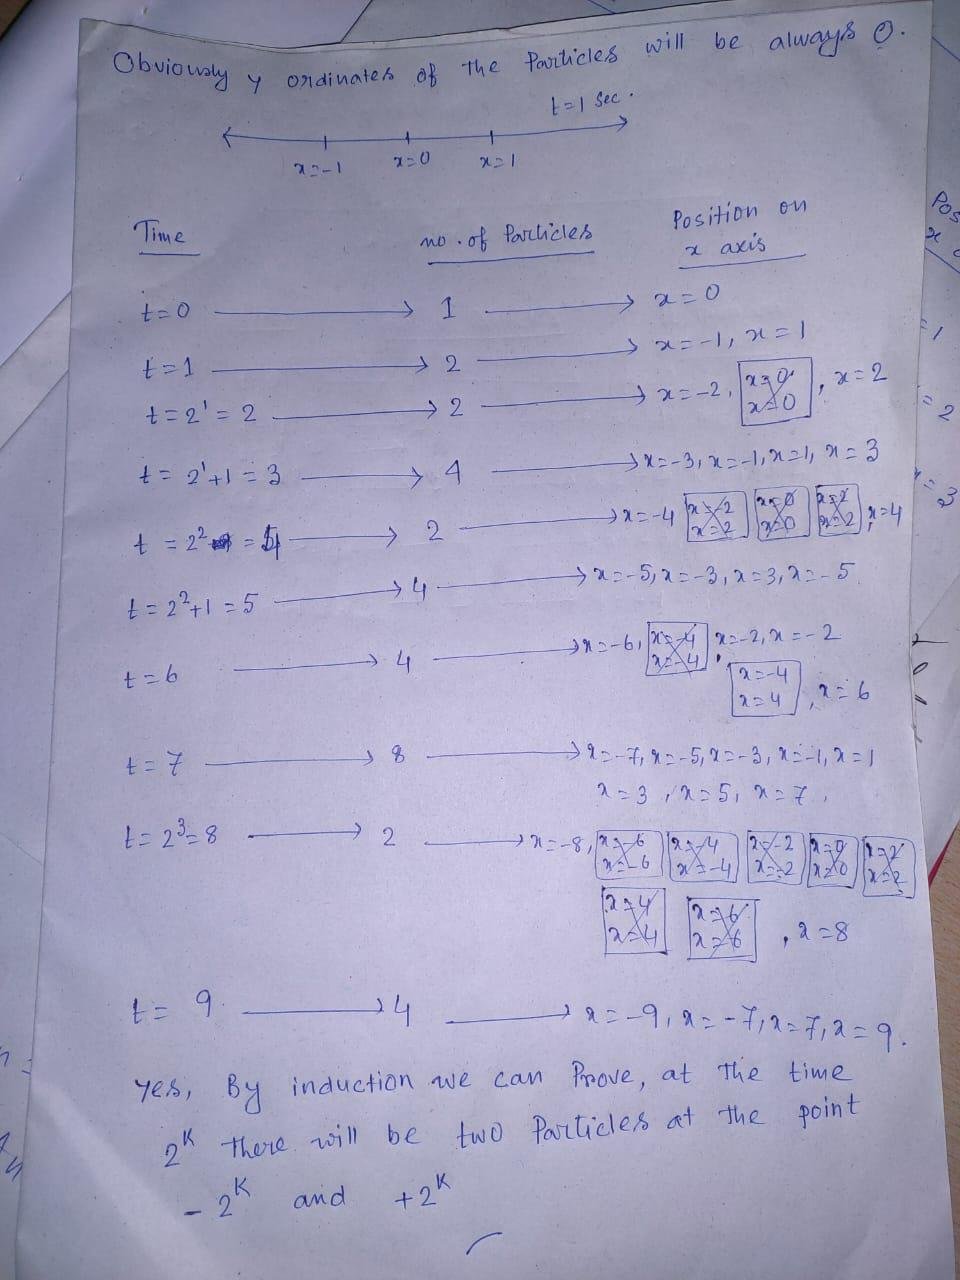 Obviously y ordinates of the Particles will be always 0.
t=1 sec.
x=-1 x=0 x=1
Time no. of Particles Position on
x axis
t=0 → 1 → x=0
t=1 → 2 → x=-1, x=1
t=2¹=2 → 2 → x=-2, x=0 x=0, x=2
t=2¹+1=3 → 4 → x=-3, x=-1, x=1, x=3
t=2² =4 → 2 → x=-4 x=-2 x=-2 x=0 x=0 x=2 x=2, x=4
t=2²+1=5 → 4 → x=-5, x=-3, x=3, x=-5
t=6 → 4 → x=-6, x=-4 x=-4, x=-2, x=-2
x=-4 x=4, x=6
t=7 → 8 → x=-7, x=-5, x=-3, x=-1, x=1
x=3, x=5, x=7,
t=2³=8 → 2 → x=-8, x=-6 x=-6 x=-4 x=-4 x=-2 x=-2 x=0 x=0 x=2 x=2
x=4 x=4 x=6 x=6, x=8
t=9 → 4 → x=-9, x=-7, x=7, x=9.
Yes, By induction we can Prove, at the time
2ᴷ there will be two Particles at the point
-2ᴷ and +2ᴷ